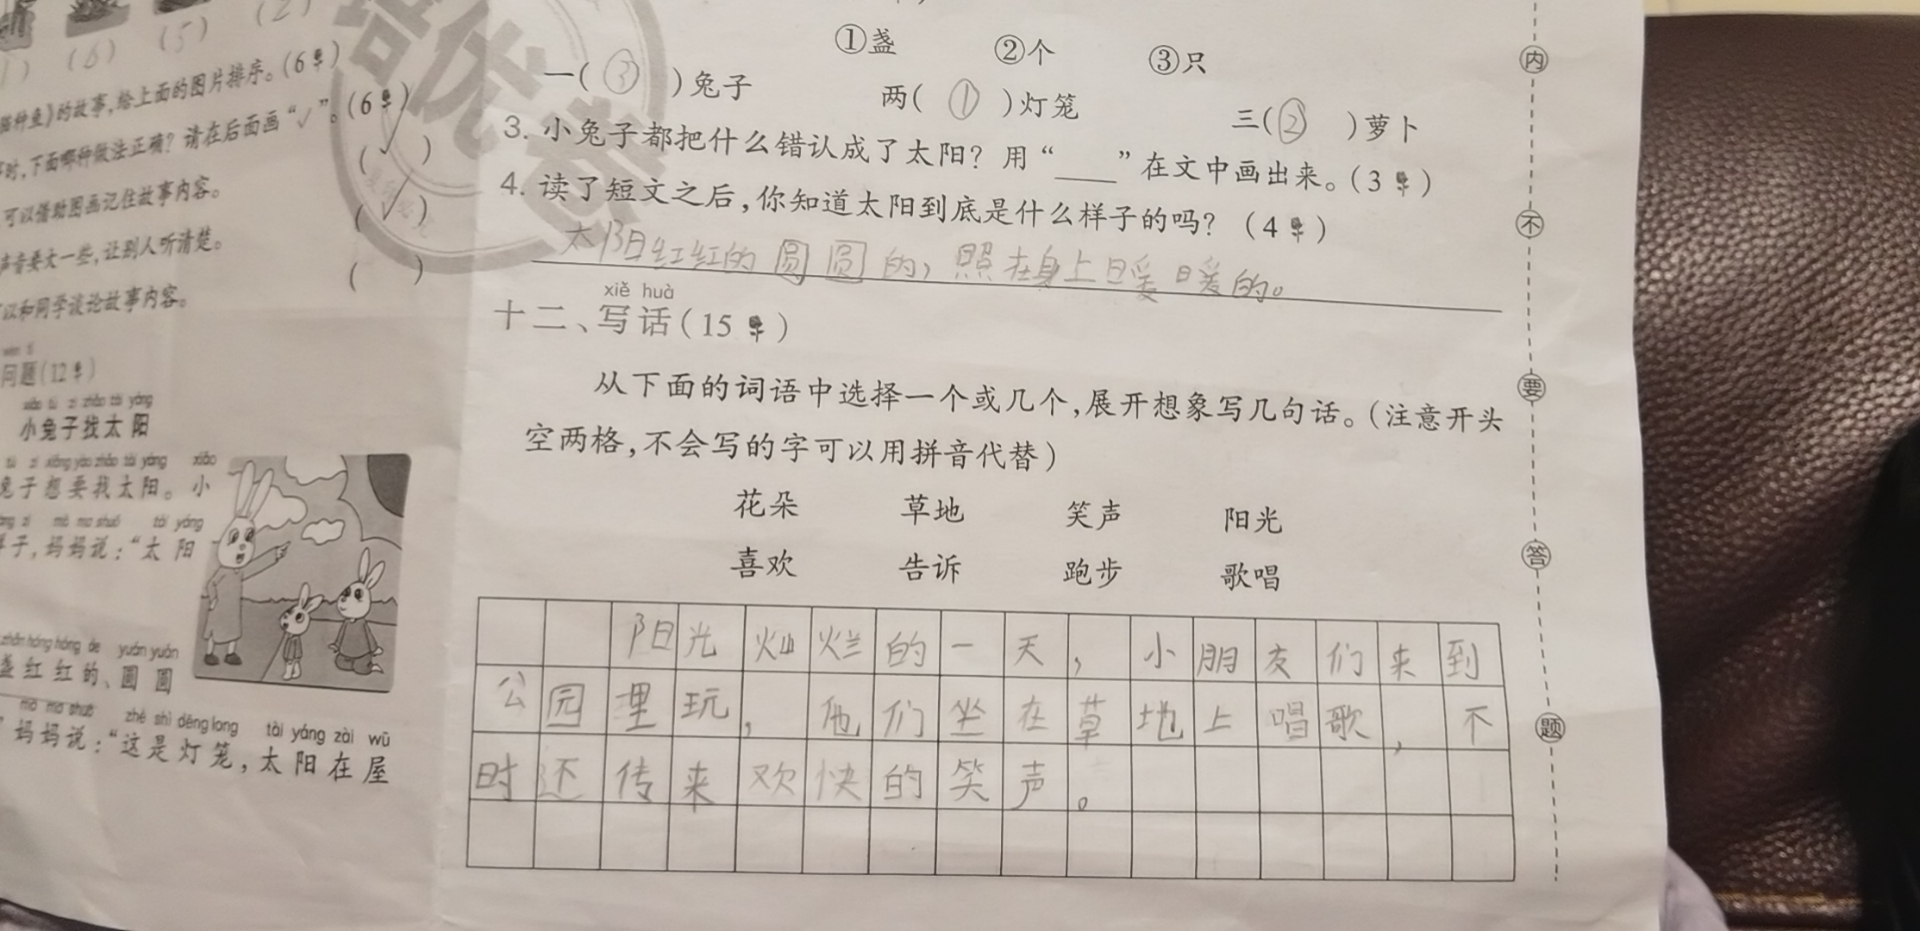 (6) (5) (2)
》的故事,给上面的图片排序。(6
时,下面哪种做法正确?请在后面画“√”。(6
可以借助图画记住故事内容。 (√)
声音要大一些,让别人听清楚。 (√)
以和同学谈论故事内容。 ( )
问题(12
xiǎo tù zi zhǎo tài yáng
小兔子找太阳
tù zi xiǎng yào zhǎo tài yáng xiǎo
兔子想要找太阳。小
mā ma shuō tài yáng
样子,妈妈说:“太阳
zhǎn hóng hóng de yuán yuán
盏红红的、圆圆
mā ma shuō zhè shì dēng long tài yáng zài wū
”妈妈说:“这是灯笼,太阳在屋
培优卷
①盏 ②个 ③只
一(③)兔子 两(①)灯笼 三(②)萝卜
3. 小兔子都把什么错认成了太阳?用“____”在文中画出来。(3
4. 读了短文之后,你知道太阳到底是什么样子的吗?(4
太阳红红的圆圆的,照在身上暖暖的。
xiě huà
十二、写话(15
从下面的词语中选择一个或几个,展开想象写几句话。(注意开头
空两格,不会写的字可以用拼音代替)
花朵 草地 笑声 阳光
喜欢 告诉 跑步 歌唱
阳光灿烂的一天,小朋友们来到
公园里玩,他们坐在草地上唱歌,不
时还传来欢快的笑声。
内
不
要
答
题